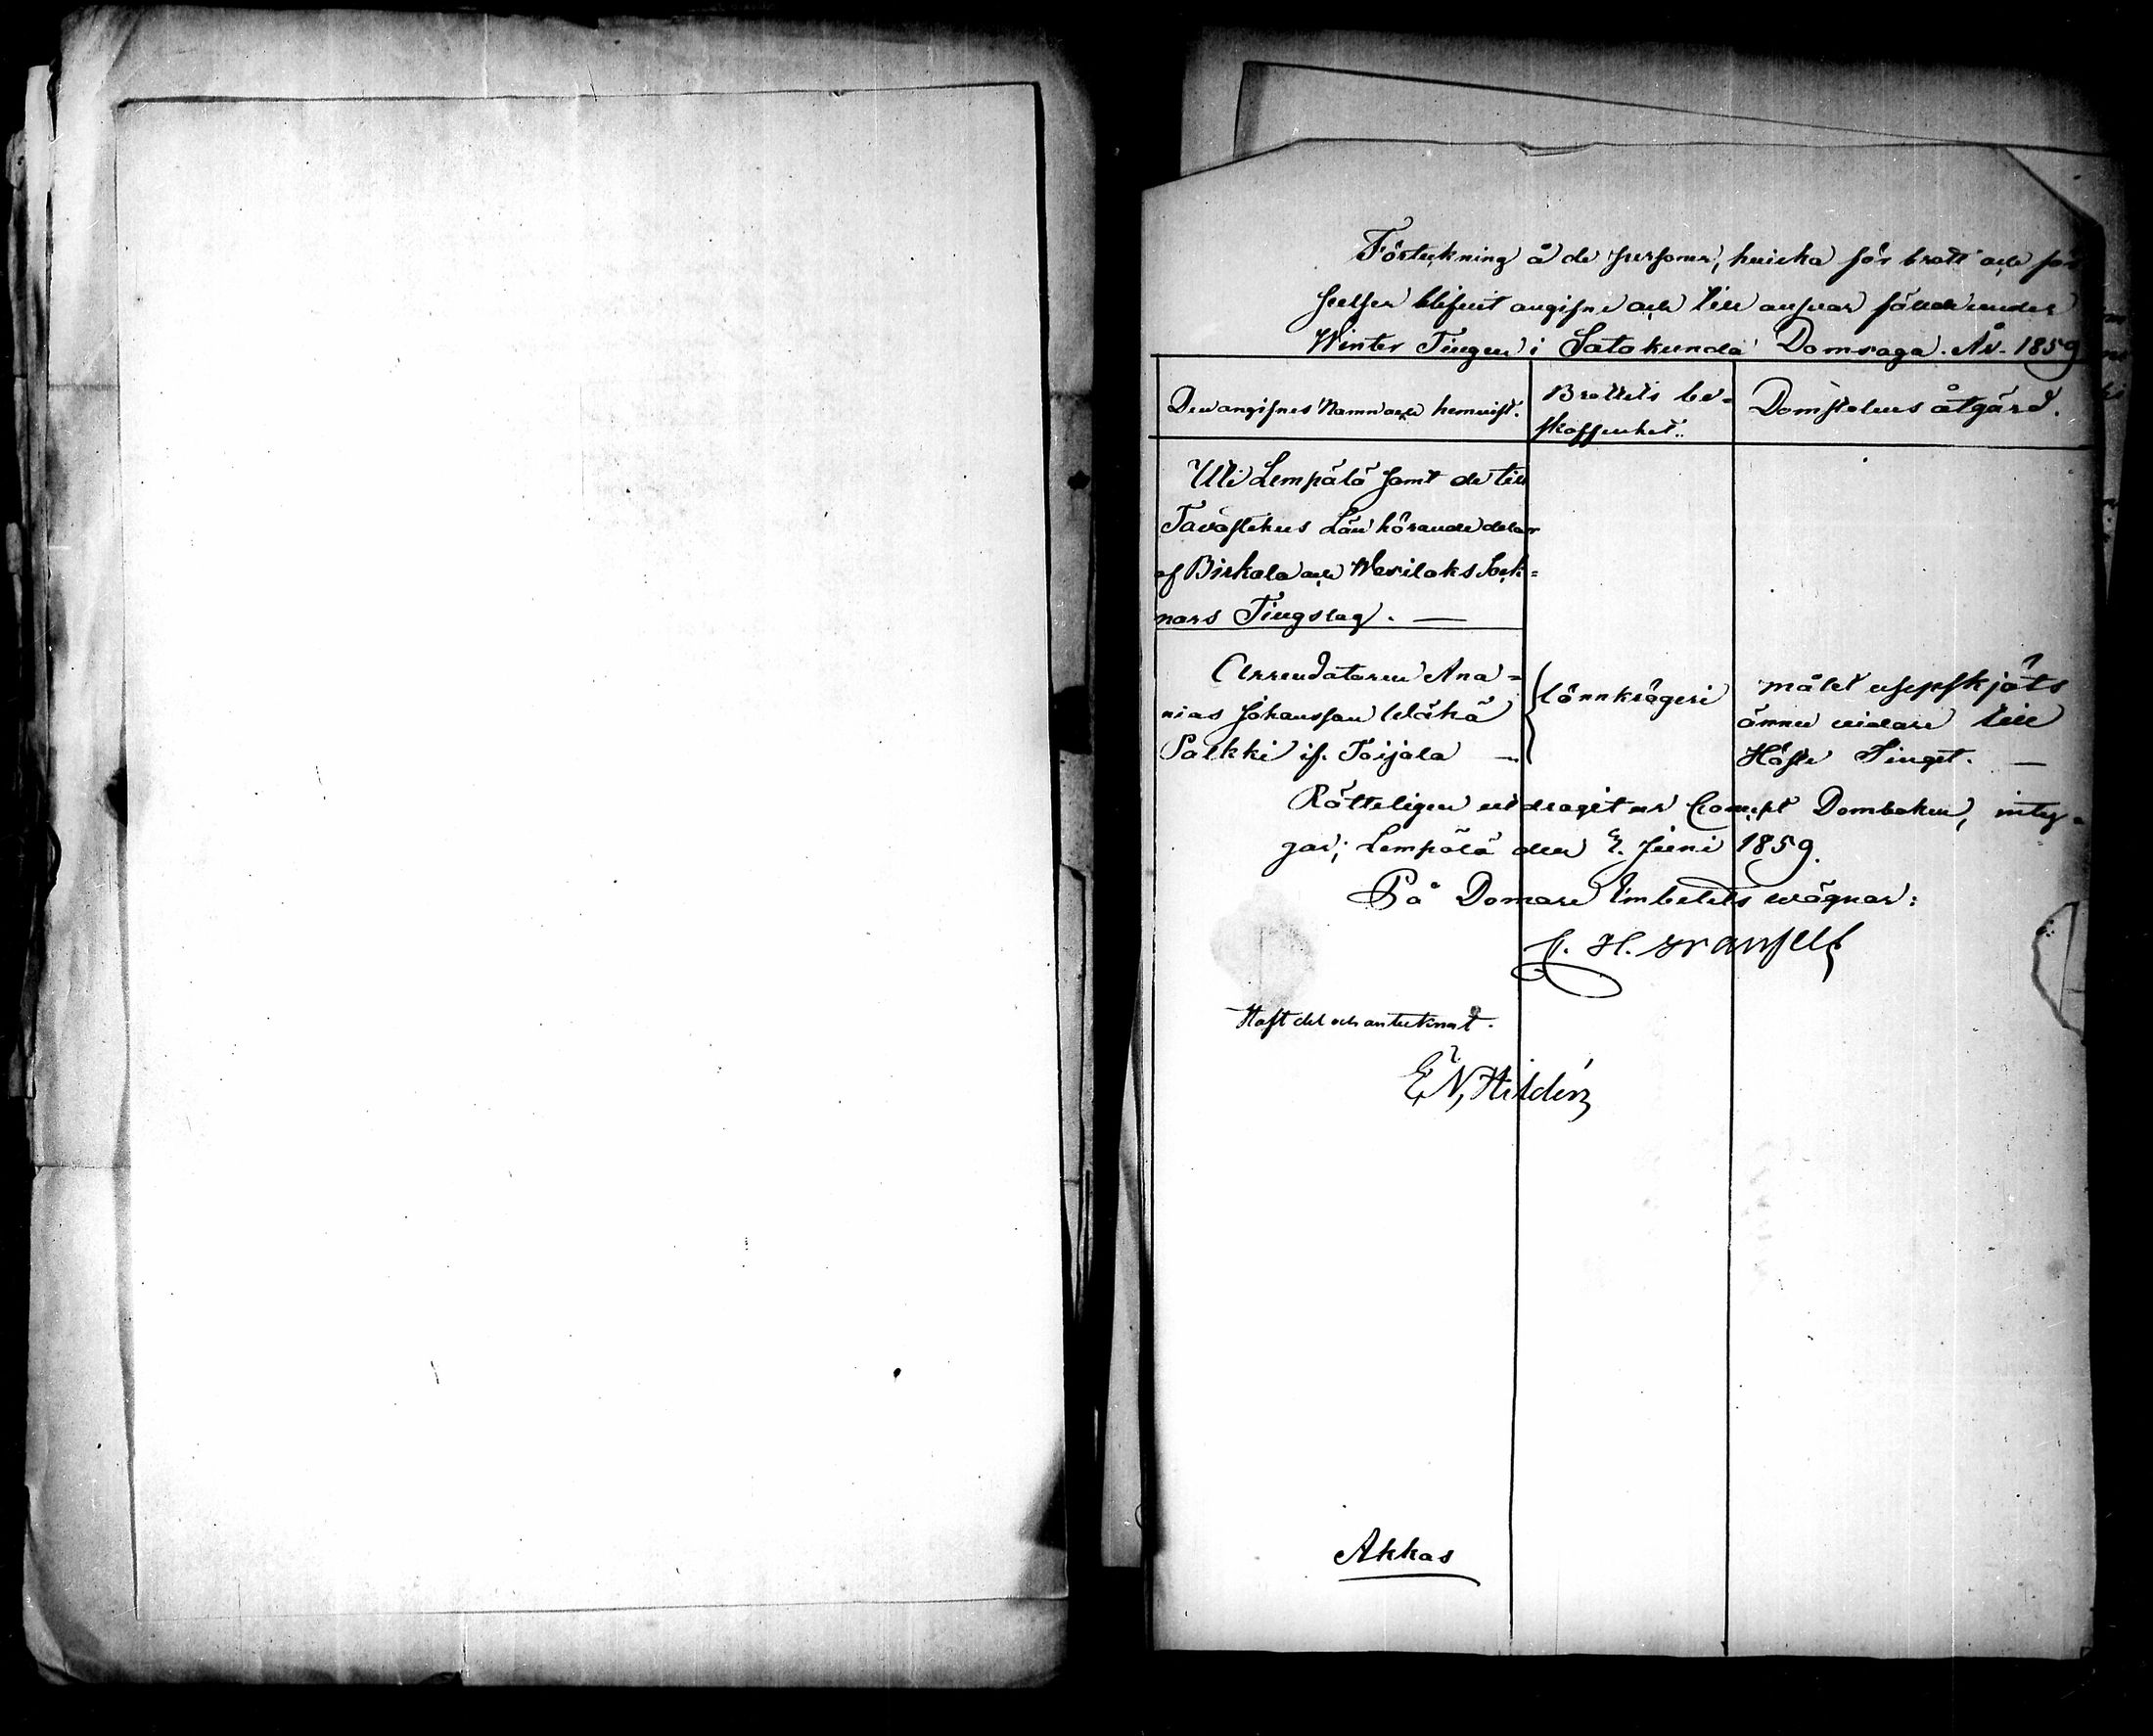 Förteckning å de personer, hvilka för brott och för
seelser blifvit angifne och till ansvar fällde under
Winter Tingen i Satakunda Domsaga. År 1859
Den angifnes Namn och hemvist.
Brottets be-
skaffenhet.
Domstolens åtgärd.
Uti Lempälä samt de till
Tavastehus Län hörande delar
af Birkala och Wesilaks Sock-
nars Tingslag.
Arrendatoren Ana-
nias Johansson Wähä
Palkki if. Toijala
Lönnkrögeri
målet uppskjöts
ännu vidare till
Höste Tinget.
Rätteligen utdragit ur Concept Domboken, intyg-
gar; Lempälä den Juni 1859.
På Domare Embetets wägnar:
H.
Haft del och antecknat.
E N, Hildén
Akkas